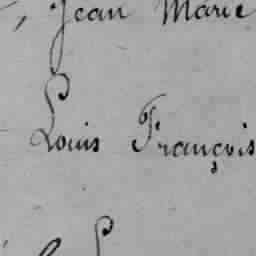 , Jean Marie
Louis François